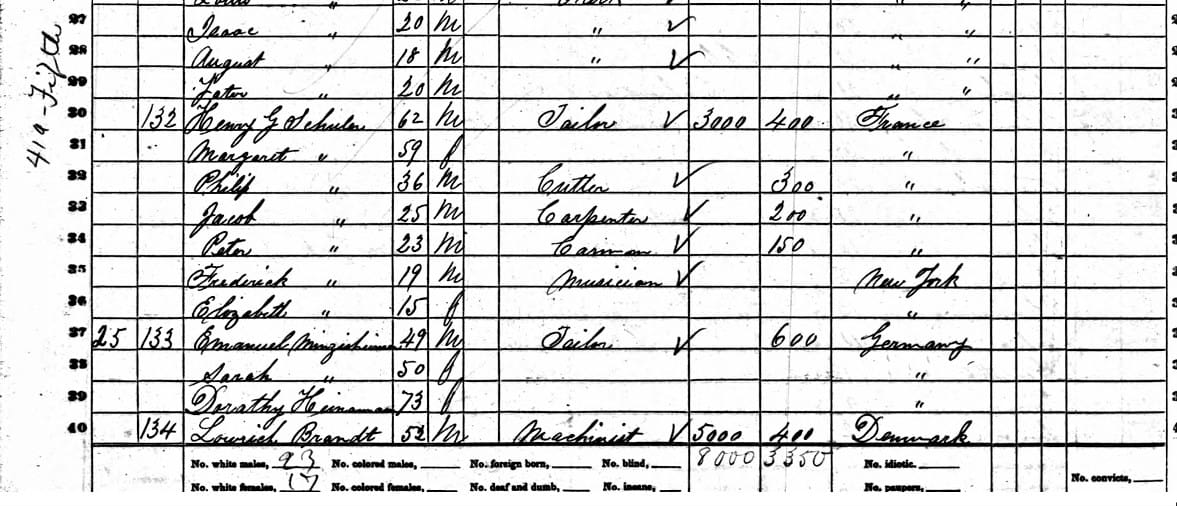 419 - Fifth
27 Isaac " 20 m " ✓ " "
28 August " 18 m " ✓ " "
29 " 20 m " "
30 132 Henry G Schuler 62 m Tailor ✓ 3000 400 France
31 Margaret " 59 f "
32 Philip " 36 m Cutler ✓ 300 "
33 Jacob " 25 m Carpenter ✓ 200 "
34 Peter " 23 m Carman ✓ 150 "
35 Frederick " 19 m Musician ✓ New York
36 Elizabeth " 15 f "
37 25 133 Emanuel 49 m Tailor ✓ 600 Germany
38 Sarah " 50 f "
39 Dorathy 73 f "
40 134 Lowrich Brandt 52 m Machinist ✓ 5000 400 Denmark
No. white males, 23 No. colored males, No. foreign born, No. blind, 8000 3350 No. idiotic.
No. white females, 17 No. colored females, No. deaf and dumb, No. insane, No. paupers, No. convicts,